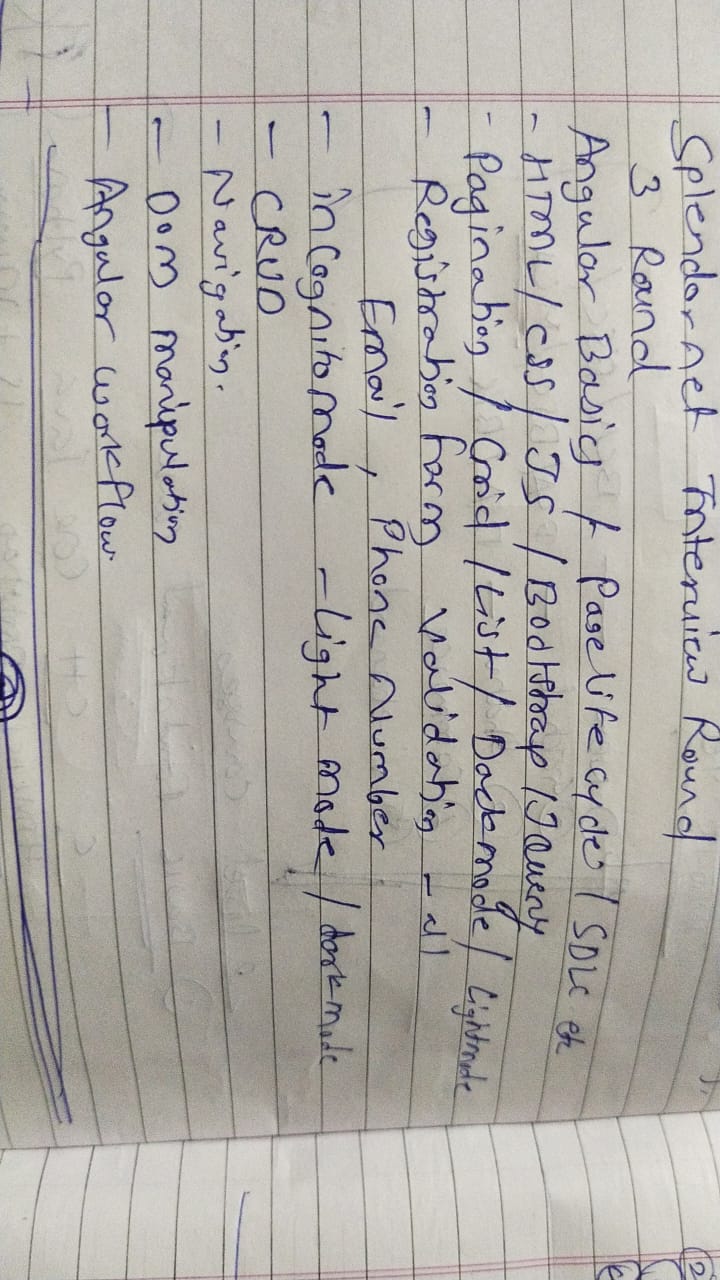 Splendornet Interview Round
3 Round
Angular Basics / Page life cycle / SDLC etc
- HTML / CSS / JS / Bootstrap / JQuery
- Pagination / Grid / List / Darkmode / Lightmode
- Registration Form Validation - all
Email, Phone Number
- incognito mode - Light mode / dark mode
- CRUD
- Navigation.
- DOM manipulation
- Angular workflow.